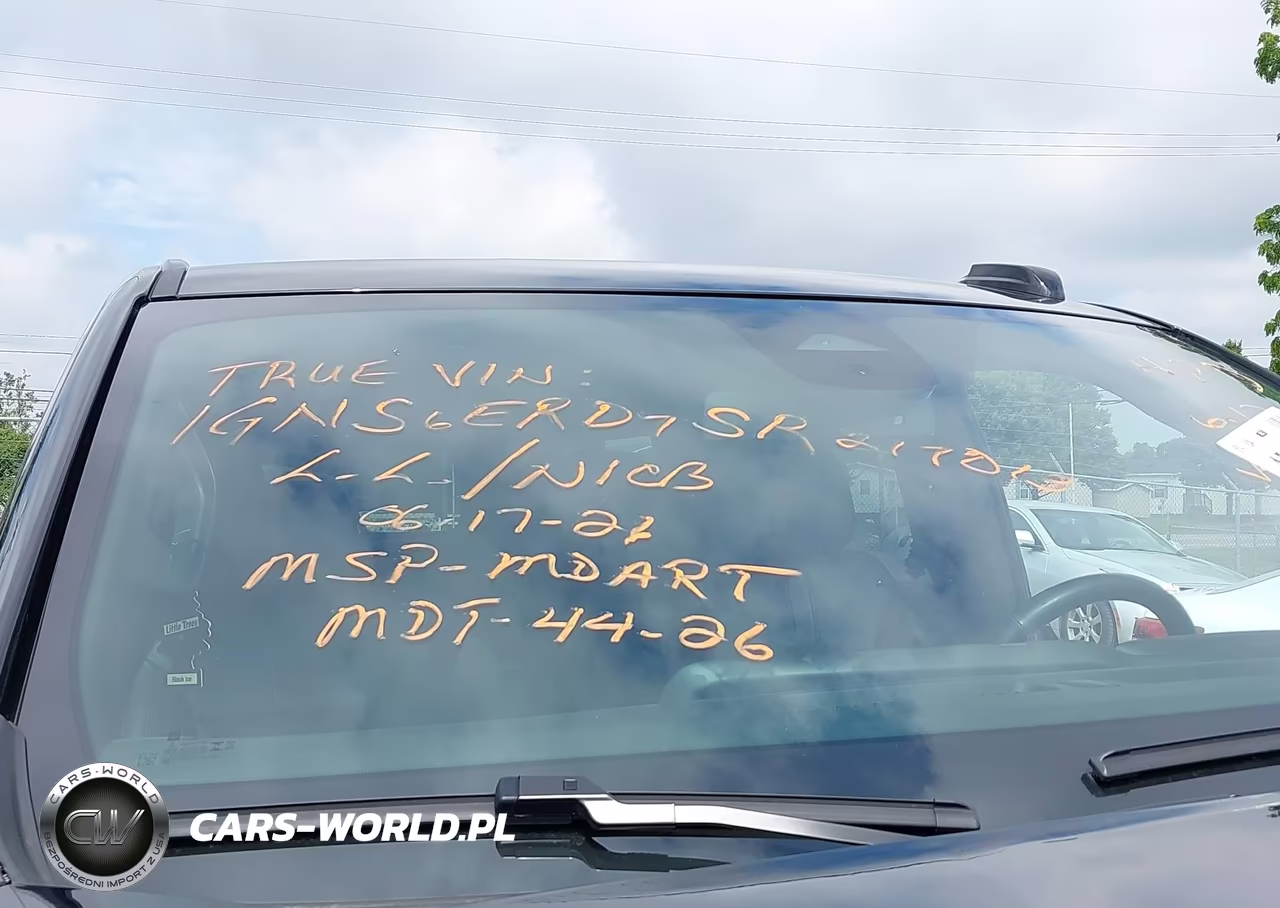 TRUE VIN:
1GNS6ERD7SR217012
L-L-/NICB
06-17-26
MSP-MDART
MDT-44-26
Little Trees
Black Ice
CARS-WORLD
CW
BEZPOŚREDNI IMPORT Z USA
CARS-WORLD.PL